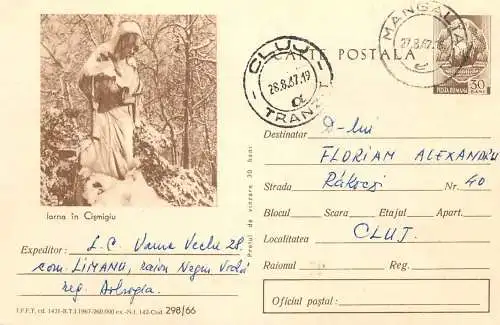 CARTE POSTALA
MANGALIA
27.8.67.16
POSTA ROMANA
30
BANI
CLUJ
28.8.67.19
TRANZIT
Destinatar D-lui
FLORIAN ALEXANDRU
Strada Rákoczi Nr. 40
Blocul Scara Etajul Apart.
Localitatea CLUJ.
Raionul Reg.
Oficiul poștal:
Prețul de vînzare 30 bani
Iarna în Cișmigiu
Expeditor: L.C. Vama Veche 28,
com. LIMANU, raion Negru Vodă
reg. Dobrogea
I.P.F.T. cd. 1431-B.T.1.1967-260.000 ex.-N.t. 142-Cod. 298/66